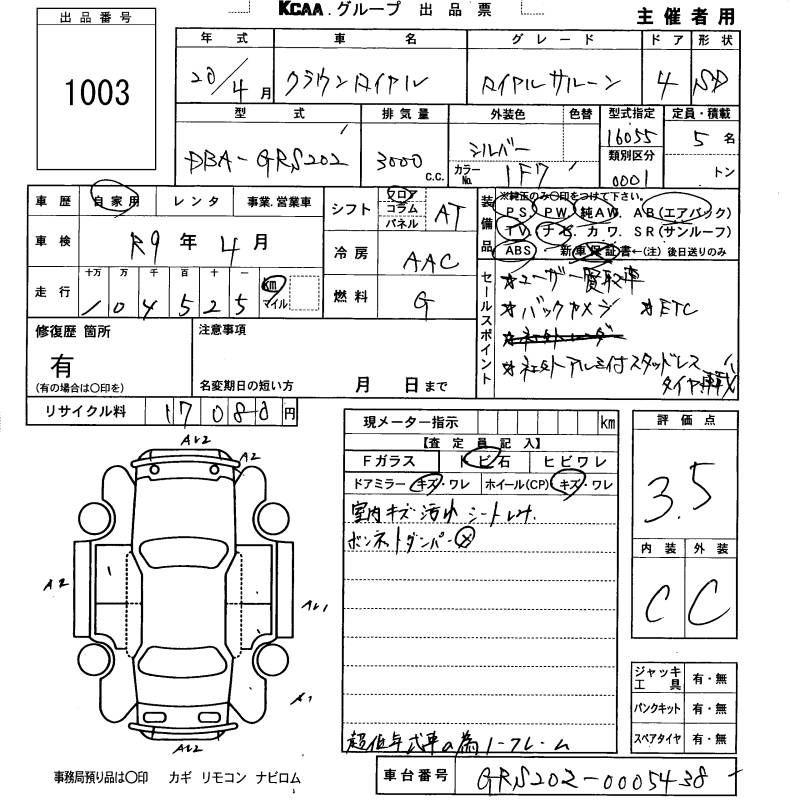 KCAA.グループ 出品票
主催者用
出品番号
1003
年式 車名 グレード ドア 形状
20/4月 クラウンロイヤル ロイヤルサルーン 4 SD
型式 排気量 外装色 色替 型式指定 定員・積載
DBA-GRS202 3000 c.c. シルバー 16055 5名
カラーNo. 1F7 類別区分 0001 トン
車歴 自家用 レンタ 事業.営業車
車検 R9年4月
走行 十万 万 千 百 十 一 km マイル
104525
シフト フロア コラム パネル AT
冷房 AAC
燃料 G
装備品
※純正のみ〇印をつけて下さい。
PS. PW. 純AW. AB(エアバック)
TV. ナビ. カワ. SR(サンルーフ)
ABS. 新(車保証書←(注)後日送りのみ
セールスポイント
☆ユーザー買取車
☆バックカメラ ☆ETC
☆社外アルミ付スタッドレス
タイヤ積載
修復歴 箇所
有
(有の場合は〇印を)
注意事項
名変期日の短い方 月 日まで
リサイクル料 17080円
現メーター指示 km
【査定員記入】
Fガラス トビ石 ヒビワレ
ドアミラー キズ・ワレ ホイール(CP) キズ・ワレ
室内キズ汚れ シート
ボンネットダンパー×
超低年式車の為ノークレーム
評価点
3.5
内装 外装
C C
ジャッキ工具 有・無
パンクキット 有・無
スペアタイヤ 有・無
AU2
A2
A2
AU1
A1
AU2
事務局預り品は〇印 カギ リモコン ナビロム
車台番号 GRS202-0005438